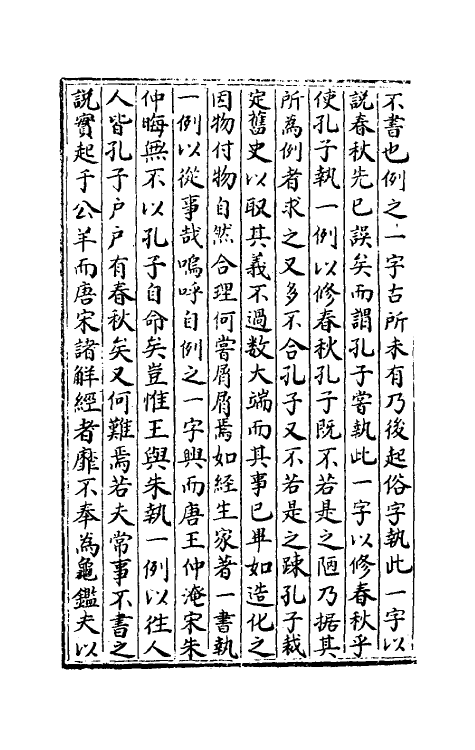 不書也例之一字古所未有乃後起俗字執此一字以
説春秋先已誤矣而謂孔子嘗執此一字以修春秋乎
使孔子執一例以修春秋孔子既不若是之陋乃据其
所為例者求之又多不合孔子又不若是之疎孔子裁
定舊史以取其義不過數大端而其事已畢如造化之
因物付物自然合理何嘗屑屑焉如經生家著一書執
一例以從事哉嗚呼自例之一字興而唐王仲淹宋朱
仲晦無不以孔子自命矣豈惟王與朱執一例以徃人
人皆孔子戸戸有春秋矣又何難焉若夫常事不書之
説實起于公羊而唐宋諸解經者靡不奉為龜鑑夫以